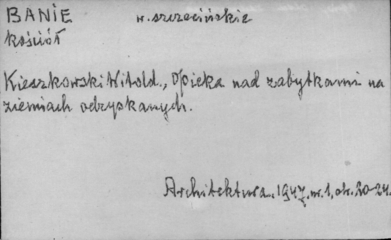 BANIE w. szczecińskie
kościół
Kieszkowski Witold., Opieka nad zabytkami na
ziemiach odzyskanych.
Architektura, 1947, nr. 1, str. 20-24.